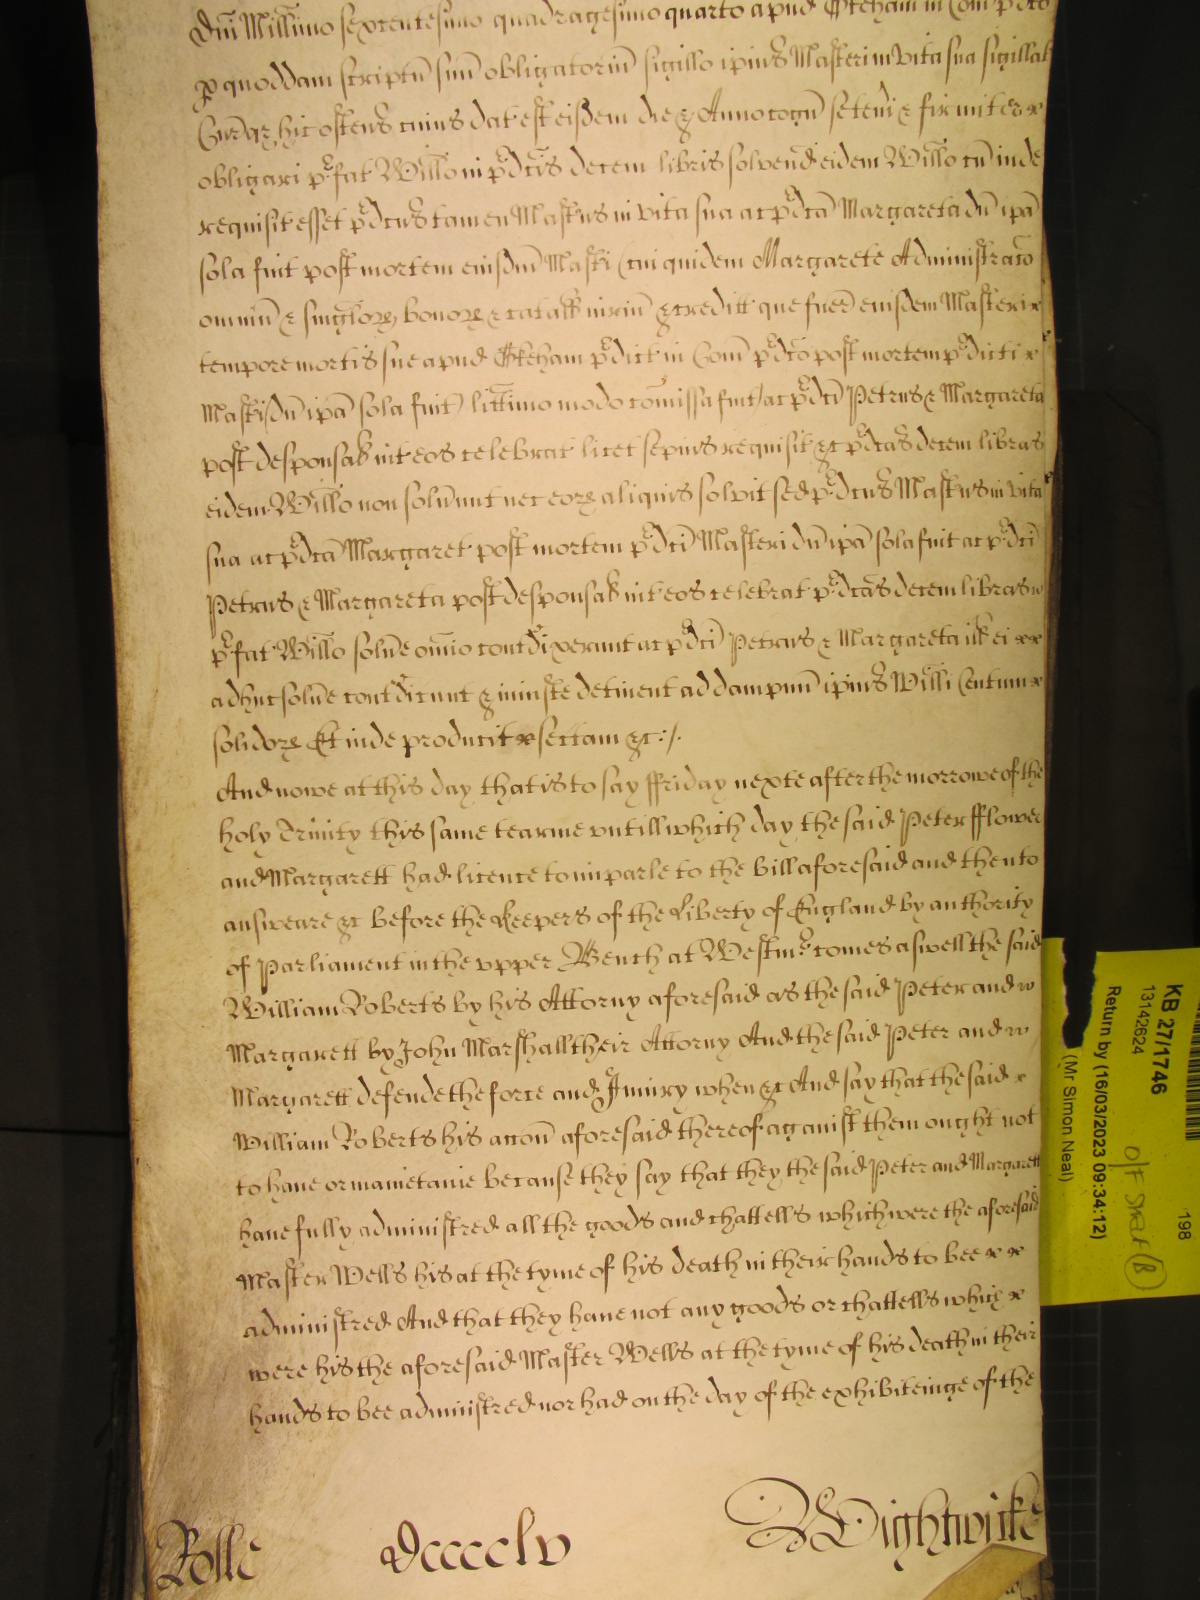 Dnī Millimo sexcentesimo quadragesimo quarto apud Okeham in Com pdco
p quoddam scriptū suū obligatoriū sigillo ipius Masteri in vita sua sigillat
Curieqȝ hic ostens cuius dat est eisdem die & Anno cogn se teneri & firmiter
obligari pfat Willo in pdcis decem libris solvend eidem Willo cū inde
requisit esset pdcus tamen Mastrus in vita sua ac pdca Margareta dū ipa
sola fuit post mortem eiusdm Mastri (cui quidem Margarete Administraco
omniū & singlorȝ bonorȝ & catall iuriū & creditt que fuer eiusdem Masteri
tempore mortis sue apud Okeham pdict in Com pdco post mortem pdicti
Mastri dū ipa sola fuit) littimo modo comissa fuit ac pdci Petrus & Margareta
post desponsal int eos celebrat licet sepius requisit &c pdcas decem libras
eidem Willo non solūunt nec eorȝ aliquis solvit sed pdcus Mastrus in vita
sua ac pdca Margaret post mortem pdci Masteri dū ipa sola fuit ac pdci
Petrus & Margareta post desponsal int eos celebrat pdcas decem libras
pfat Willo solue omio contdixerunt ac pdci Petrus & Margareta ill ei
adhuc solue contdicunt & iniuste detinent ad dampnū ipius Willi Centum
solidorȝ Et inde producit sectam &c:/.
And nowe at this day that is to say ffriday nexte after the morrowe of the
holy Trinity this same tearme untill which day the said Peter fflower
and Margarett had licence to imparle to the bill aforesaid and then to
answeare &c before the Keepers of the Liberty of England by authority
of Parliament in the upper Bench at Westmr comes aswell the said
William Roberts by his Attorny aforesaid as the said Peter and
Margarett by John Marshall their Attorny And the said Peter and
Margarett defende the force and Iniury when &c And say that the said
William Roberts his accon aforesaid thereof aganist them ought not
to have or mainetaine because they say that they the said Peter and Margarett
have fully administred all the goods and chattells which were the aforesaid
Master Wells his at the tyme of his death in their hands to bee
administred And that they have not any goods or chattells which
were his the aforesaid Master Wells at the tyme of his death in their
hands to bee administred nor had on the day of the exhibiteinge of the
Rolle Dccccclv Wightwicke
KB 27/1746 198
13142624
Return by (16/03/2023 09:34:12)
(Mr Simon Neal)